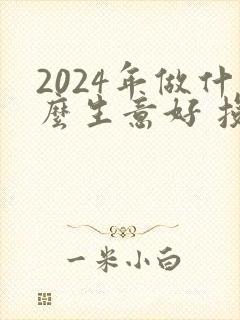 2024年做什
麼生意好
一米小白